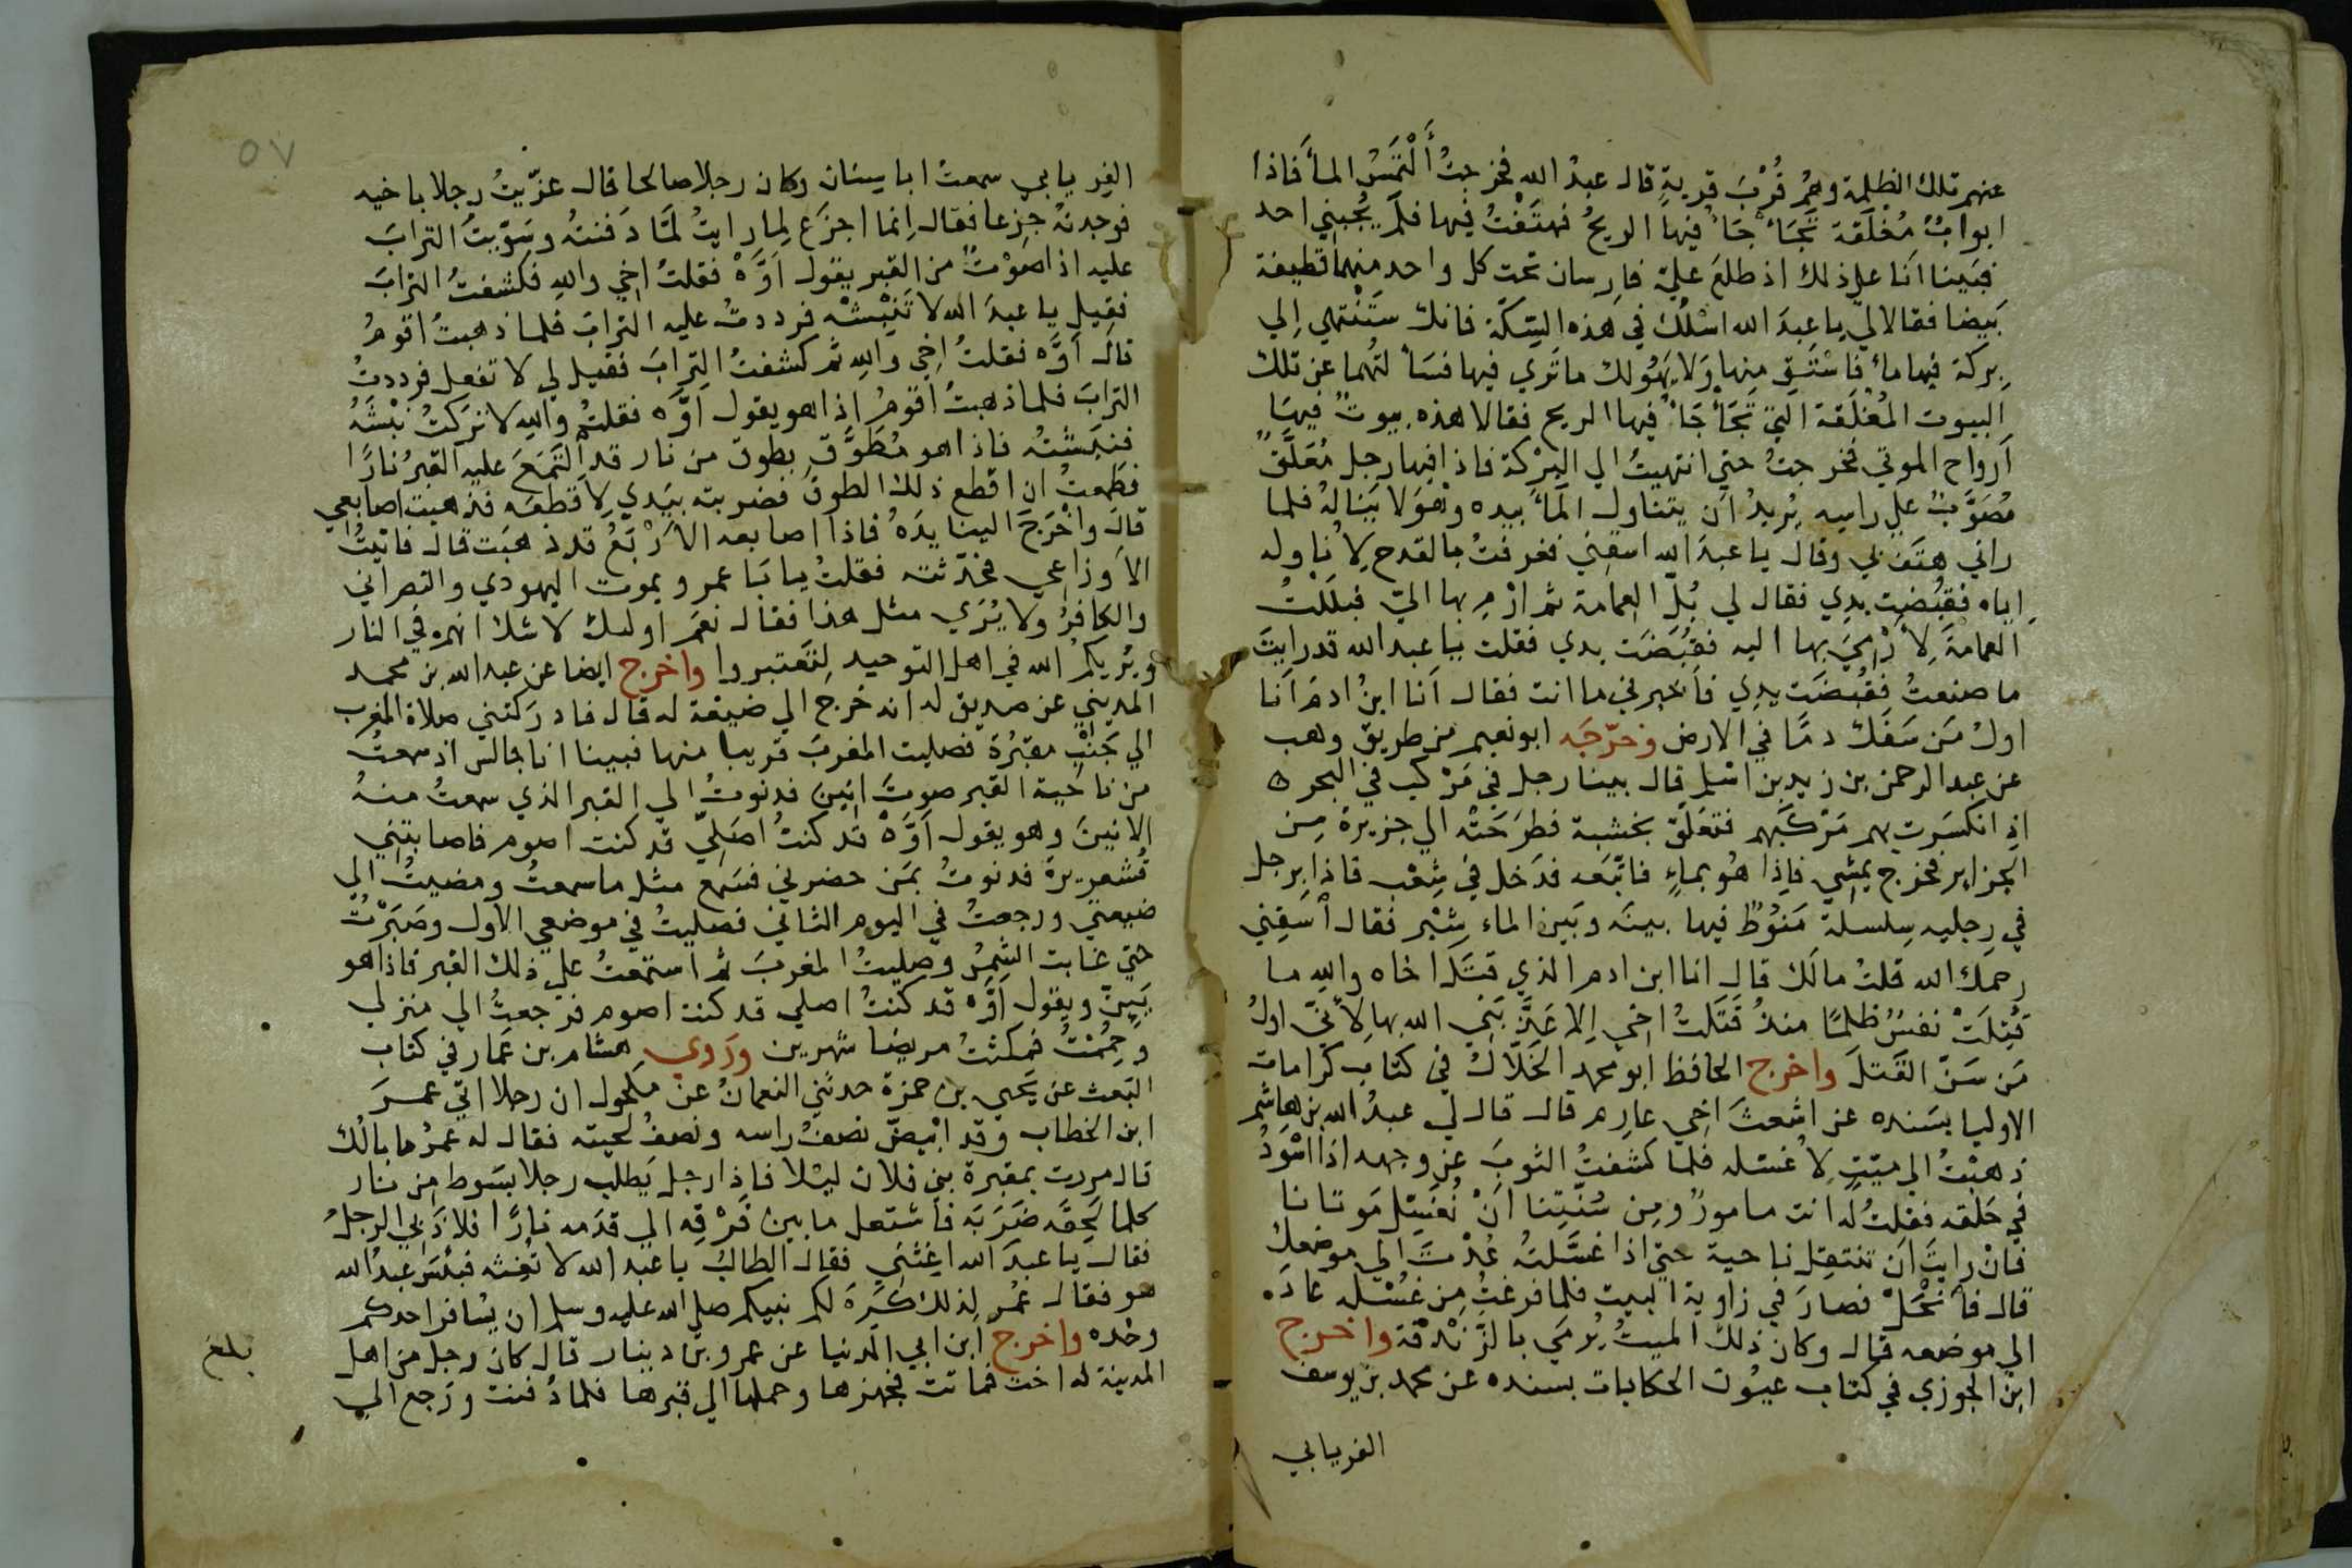 عنهم تلك الظلمة وهم قُرْبَ قريةٍ قال عبدُ الله فخرجتُ أَلْتَمِسُ الماَ فاذا
ابوابٌ مُغلَقة تَجَأْجَأُ فيها الريحُ فهتَفْتُ فيها فلَم يُجبني احد
فبَينا اَنا علي ذلك اذ طلعَ عليّ فارِسان تحت كل واحد منهما قطيفة
بَيضا فقالا لي يا عبدَ الله اسْلُك في هَذه السِكّة فانك ستَنْتهي اِلي
بِركة فيها ماءٌ فاسْتَق منها وَلا يَهُولك ما تَري فيها فسَأَلتُهما عن تلك
البيوت المُغْلَقة التي تَجَأْجَأُ فيها الريح فقالا هذه بيوتٌ فيها
اَرواح الموتي فخرجتُ حتي انتهيتُ الي البِرْكة فاذا فيها رجل مُعَلَّقٌ
مُصَوَّبٌ علي راسِه يُريدُ اَن يتناول المَاَ بيده وهوَ لا يَنالهُ فلما
راني هتَف بي وقال يا عبدَ الله اسقِني فغرفتُ بالقدح لِاُناوله
اِياه فقُبضت يدِي فقال لي بُلّ العِمامة ثم ارْمِ بها اليّ فبلَلْتُ
العمامةَ لِاَرْمِيَ بها اليه فقُبِضَت يدي فقلت يا عبد الله قد رايتَ
ما صنعتُ فقُبضَت يدِي فاَخبرني ما انت فقال اَنا ابنُ ادمَ اَنا
اولُ مَن سَفَك دمًا في الارض وخرّجَه ابو نعيم من طريق وهب
عن عبد الرحمن بن زيد بن اسلم قال بينا رجل في مَرْكب في البحر
اذِ انكسَرت بهم مَرْكَبهم فتعَلَّق بخشبة فطرَحَتْه الي جزيرة مِن
الجزاير فخرج يمشي فاِذا هُو بماءٍ فاتّبعَه فدَخل في شِعْب فاذا برجل
في رِجليه سِلسلة مَنُوط فيها بينَه وبَين الماء شِبْر فقال اَسقِني
رحمك الله قلتُ مالَك قال انا ابن ادم الذي قتَل اخاه والله ما
قُتِلَتْ نفسٌ ظلمًا منذُ قَتَلتُ اخي اِلا عَذّبَني الله بها لِاَنّي اولُ
مَن سَنَّ القَتلَ واخرج الحافظ ابو محمد الخَلّال في كتاب كرامات
الاوليا بسَنده عن اشعثَ اخي عارِم قال قال لي عبدُ الله بن هاشم
ذهبْتُ الي ميّتٍ لِاُغسّله فلما كشفتُ الثوبَ عن وجهه اذا اسْودُ
في حَلقه فقلتُ له انت مامورٌ ومِن سُنّتِنا اَنْ نُغَسّل مَوتانا
فانْ رايتَ اَن تنتقِل ناحية حتي اذا غسّلتُه عُدْتَ الي موضعِكَ
قال فاَنْحَلَّ فصارَ في زاوية البيت فلما فرغتُ مِن غُسْله عادَ
الي موضعه قال وكان ذلك الميتُ يُرمَي بالزَّنْدقة واخرج
ابن الجوزي في كتاب عيُون الحكايات بسنده عن محمد بن يوسف
الفريابي
٥٧
الفِريابي سمعت ابا سِنان وكان رجلا صالحا قال عزّيتُ رجلا باخيه
فوجدتهُ جزِعا فقال اِنما اجزَع لِما رايتُ لمَّا دَفنتهُ وسَوّيتُ الترابَ
عليه اذا صوْتٌ من القبر يقول اَوَّهْ فقلتُ اخي واللهِ فكشفتُ الترابَ
فقيل يا عبدَ الله لا تَنْبِشْه فرددتُ عليه الترابَ فلما ذهبتُ اقومُ
قال اَوَّه فقلتُ اخي واللهِ ثم كشفتُ الترابَ فقيل لي لا تفعل فرددتُ
الترابَ فلما ذهبتُ اقومُ اذا هو يقول اوَّه فقلتُ واللهِ لا تركتُ نبْشَهُ
فنبَشتُه فاذا هو مُطَوَّق بطوق من نار قد اَلْتَمَعَ عليه القبرُ نارًا
فطَمعتُ ان اقطع ذلك الطوقَ فضربته بيَدي لِاَقطعَه فذهبت اصابعي
قال واخْرَجَ الينا يدَهُ فاذا اصابعه الاَرْبَعُ قد ذهبَت قال فاتيتُ
الاَوزاعي فحدّثته فقلتُ يا ابَا عمرو يموت اليهودي والنصراني
والكافرُ ولا يُرَي مثل هذا فقال نعَم اوليك لا شك انهم في النار
ويُريكمُ الله في اهل التوحيد لِتَعتبروا واخرج ايضا عن عبد الله بن محمد
المديني عن صديق له انه خرج الي ضيعة له قال فادرَكتني صلاة المغرب
الي جَنْبِ مقبُرة فصليت المغربَ قريبا منها فبينا انا جالس اذ سمعتُ
من ناحية القبر صوتَ انينٍ فدنوتُ الي القبر الذي سمعتُ منهُ
الانينَ وهو يقول اَوَّهْ قد كنتُ اصَلِّي قد كنت اصوم فاصابتني
قُشعريرة فدنوتُ بمَن حضرني فسَمع مثل ما سمعتُ ومضيتُ الي
ضيعتي ورجعتُ في اليوم الثاني فصليتُ في موضعي الاول وصَبَرْتُ
حتي غابت الشمسُ وصليتُ المغربَ ثم استمعتُ علي ذلك القبر فاذا هو
يَئِنّ ويقول اَوَّه قد كنتُ اصلي قد كنت اصوم فرجعتُ الي منزلي
وحُمِمْتُ فمكثتُ مريضا شهرين ورَوي هشام بن عَمار في كتاب
البَعث عن يَحيي بن حمزة حدثني النعمانُ عن مَكحول ان رجلا اتي عمرَ
ابن الخطاب وقد ابْيضّ نصفُ راسه ونصفُ لحيته فقال له عمرُ ما بالُك
قال مررت بمقبرة بني فلان ليْلا فاذا رجل يَطلب رجلا بسَوط من نار
كلما لَحِقَه ضَرَبَه فاَشتعل ما بين فَرْقِه الي قدَمه نارًا فلاذَ بي الرجلُ
فقال يا عبدَ الله اغِثني فقال الطالبُ يا عبد الله لا تُغِثه فبئسَ عبدُ الله
هو فقال عمر لِذلك كَرِهَ لكم نبيكم صلي الله عليه وسلم ان يُسافر احدكم
وحْده واخرج ابن ابي الدنيا عن عمرو بن دينار قال كان رجل من اهل
المدينة له اخت فماتت فجهزها وحملها الي قبرها فلما دُفنت ورَجع الي
بلغ